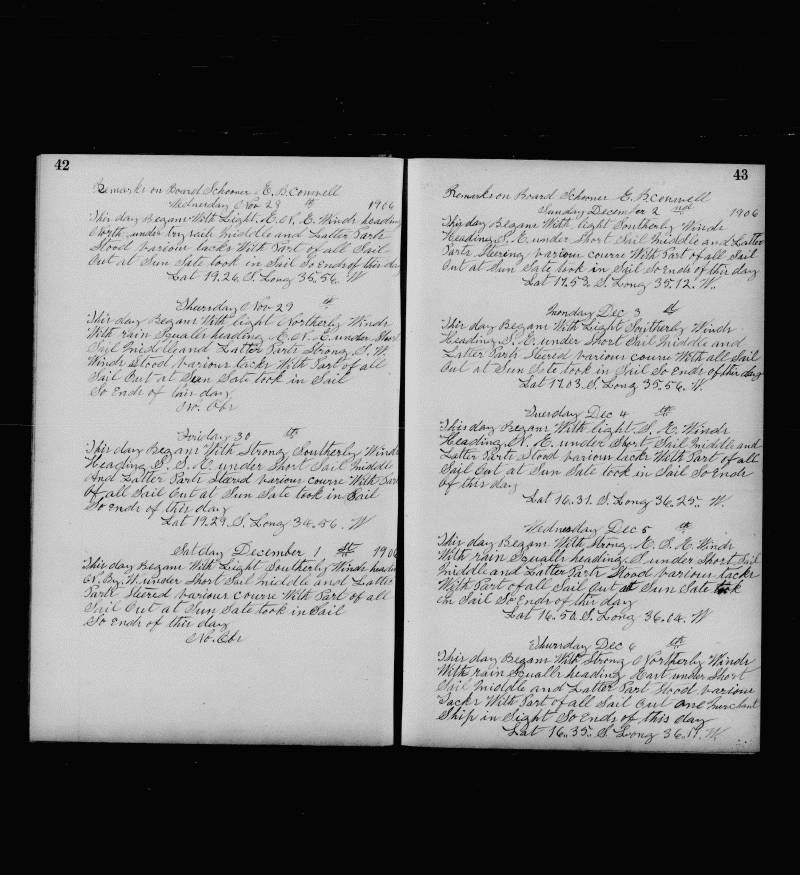 42
Remarks on Board Schooner E. B. Conwell
Wednesday Nov 28 th 1906
This day Began With Light E. N. E. Winds heading
North under try sail Middle and Latter Parts
Stood various tacks With Part of all Sail
Out at Sun Sate took in Sail So Ends of this day
Lat 19.26. S. Long 35.56. W
Thursday Nov 29 th
This day Began With light Northerly Winds
With rain Squalls heading E. N. E. under Short
Sail Middle and Latter Parts Strong S. W.
Winds Stood various tacks With Part of all
Sail Out at Sun Sate took in Sail
So Ends of this day
No. Obs
Friday 30 th
This day Began With Strong Southerly Winds
Heading E. S. E. under Short Sail Middle
And Latter Parts Steered various course With Part
of all Sail Out at Sun Sate took in Sail
So Ends of this day
Lat 19.29. S. Long 34.56. W
Satday December 1 st 1906
This day Began With Light Southerly Winds heading
W. By. N. under Short Sail Middle and Latter
Parts Steered various course With Part of all
Sail Out at Sun Sate took in Sail
So Ends of this day
No. Obs
43
Remarks on Board Schooner E. B. Conwell
Sunday December 2 nd 1906
This day Began With light Southerly Winds
Heading S. E. under Short Sail Middle and Latter
Parts Steering various course With Part of all Sail
Out at Sun Sate took in Sail So Ends of this day
Lat 17.53. S. Long 35.12. W.
Monday Dec 3 d
This day Began With Light Southerly Winds
Heading S. E. under Short Sail Middle and
Latter Parts Steered various course With all Sail
Out at Sun Sate took in Sail So Ends of this day
Lat 17.03. S. Long 35.56. W.
Tuesday Dec 4 th
This day Began With light S. E. Winds
Heading N. E. under Short Sail Middle and
Latter Parts Stood various tacks With Part of all
Sail Out at Sun Sate took in Sail So Ends
of this day
Lat 16.31. S. Long 36.25. W.
Wednesday Dec 5 th
This day Began With Strong E. S. E. Winds
With rain Squalls heading S. under Short Sail
Middle and Latter Parts Stood various tacks
With Part of all Sail Out at Sun Sate took
in Sail So Ends of this day
Lat 16.50. S. Long 36.04. W
Thursday Dec 6 th
This day Began With Strong Northerly Winds
With rain Squalls heading East under Short
Sail Middle and Latter Part Stood various
Tacks With Part of all Sail Out One Merchant
Ship in Sight So Ends of this day
Lat 16.35. S. Long 36.11. W.